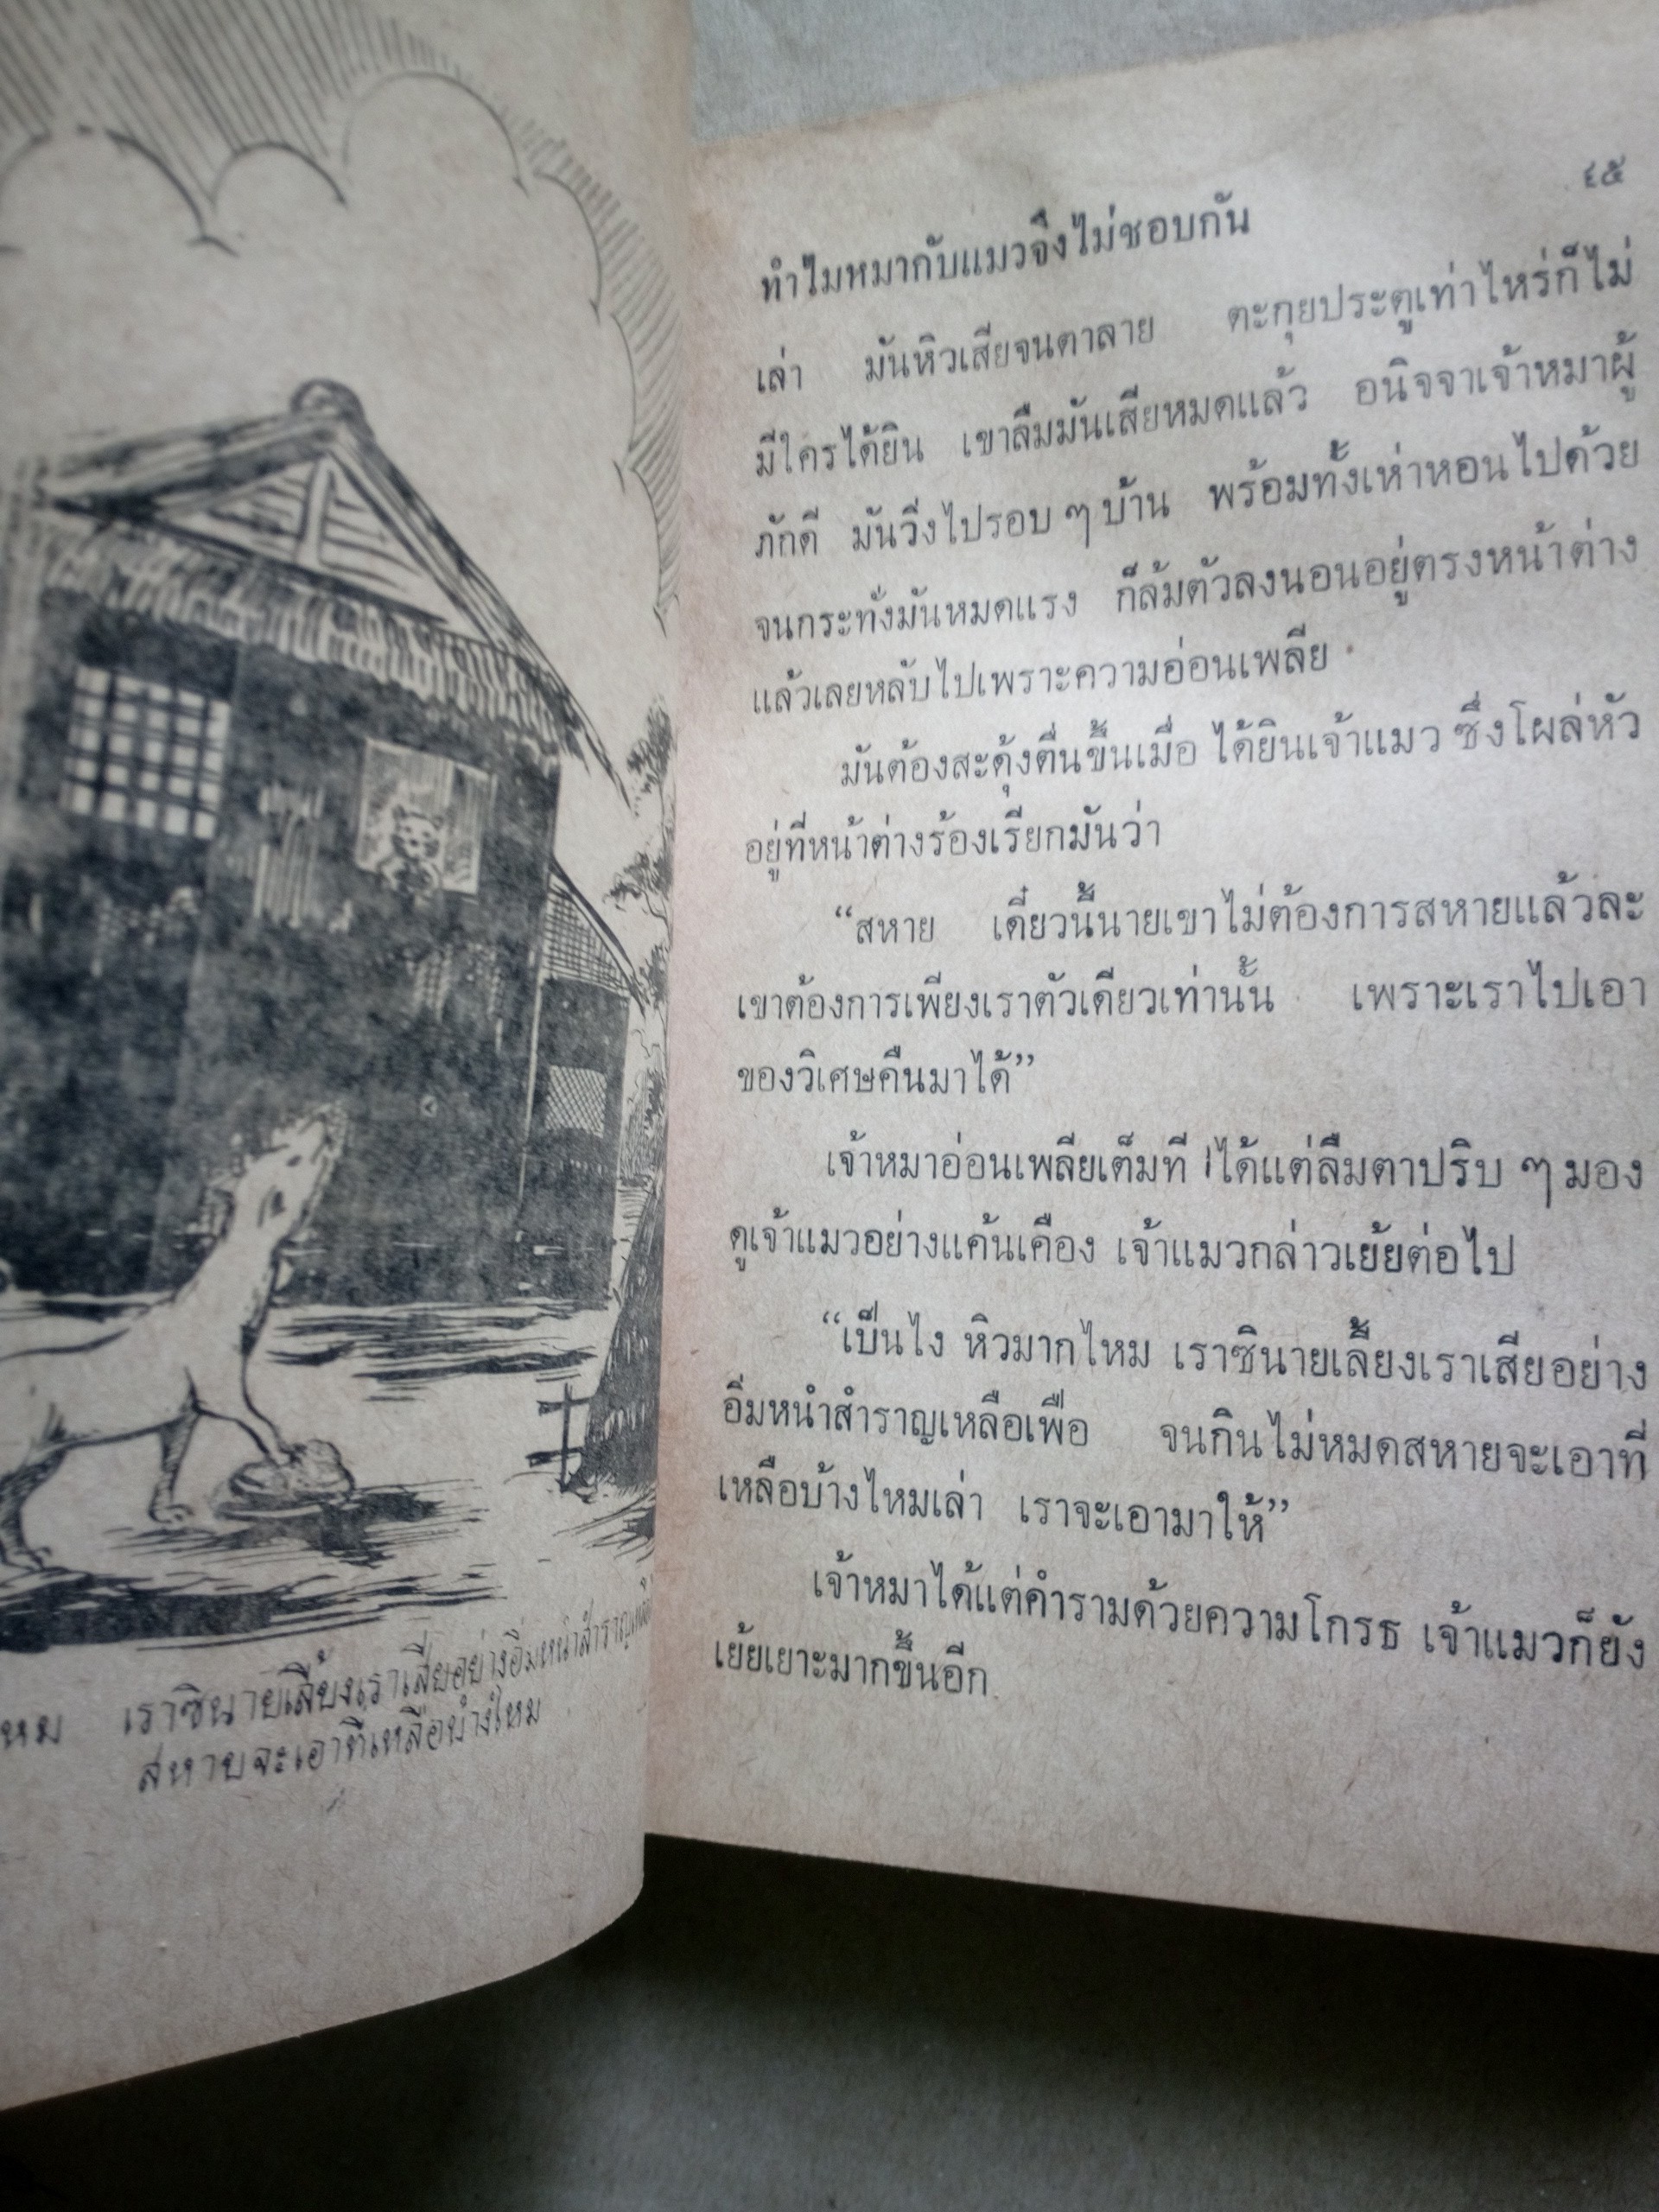 หม เราซินายเลี้ยงเราเสียอย่างอิ่มหนำสำราญเหลือ
สหายจะเอาที่เหลือบ้างไหม
๔๕
ทำไมหมากับแมวจึงไม่ชอบกัน
เล่า มันหิวเสียจนตาลาย ตะกุยประตูเท่าไหร่ก็ไม่
มีใครได้ยิน เขาลืมมันเสียหมดแล้ว อนิจจาเจ้าหมาผู้
ภักดี มันวิ่งไปรอบ ๆ บ้าน พร้อมทั้งเห่าหอนไปด้วย
จนกระทั่งมันหมดแรง ก็ล้มตัวลงนอนอยู่ตรงหน้าต่าง
แล้วเลยหลับไปเพราะความอ่อนเพลีย
มันต้องสะดุ้งตื่นขึ้นเมื่อ ได้ยินเจ้าแมว ซึ่งโผล่หัว
อยู่ที่หน้าต่างร้องเรียกมันว่า
“สหาย เดี๋ยวนี้นายเขาไม่ต้องการสหายแล้วละ
เขาต้องการเพียงเราตัวเดียวเท่านั้น เพราะเราไปเอา
ของวิเศษคืนมาได้”
เจ้าหมาอ่อนเพลียเต็มที ได้แต่ลืมตาปริบ ๆ มอง
ดูเจ้าแมวอย่างแค้นเคือง เจ้าแมวกล่าวเย้ยต่อไป
“เป็นไง หิวมากไหม เราซินายเลี้ยงเราเสียอย่าง
อิ่มหนำสำราญเหลือเฟือ จนกินไม่หมดสหายจะเอาที่
เหลือบ้างไหมเล่า เราจะเอามาให้”
เจ้าหมาได้แต่คำรามด้วยความโกรธ เจ้าแมวก็ยัง
เย้ยเยาะมากขึ้นอีก